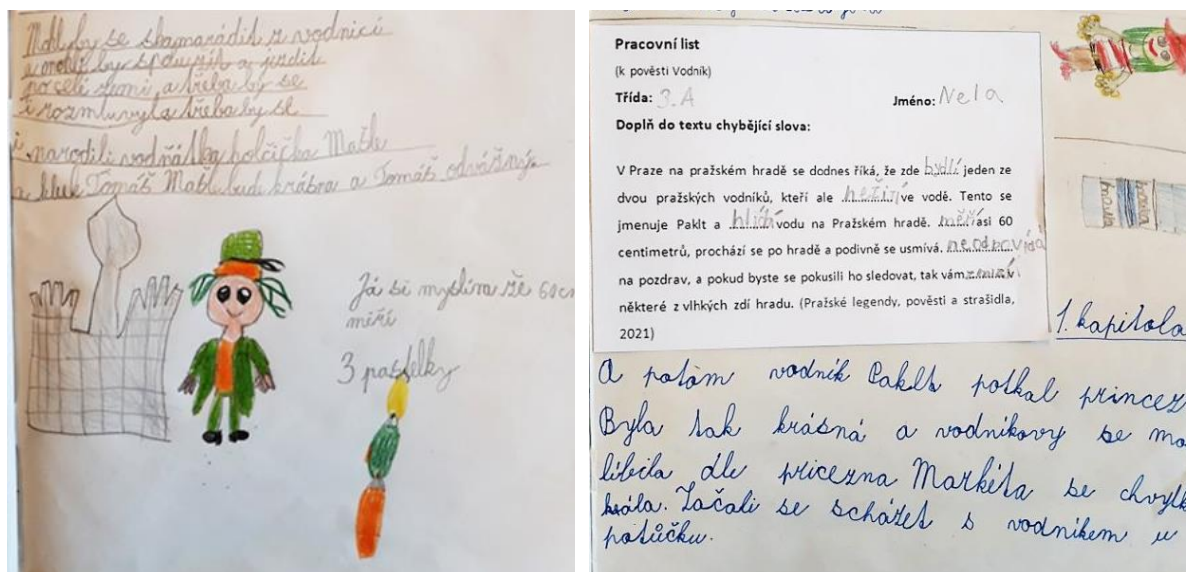 Mohl by se skamarádit z vodnicí
a mohli by spolu žít a jezdit
po celé zemi a třeba by se
i rozmluvyla třeba by se
i narodili vodňátka holčička
a kluk Tomáš bude krásna a Tomáš odvážný
Já si myslím že 60 cm
měří
3 pastelky
Pracovní list
(k pověsti Vodník)
Třída: 3.A
Jméno: Nela
Doplň do textu chybějící slova:
V Praze na pražském hradě se dodnes říká, že zde bydlí jeden ze
dvou pražských vodníků, kteří ale nežijí ve vodě. Tento se
jmenuje Paklt a hlídá vodu na Pražském hradě. měří asi 60
centimetrů, prochází se po hradě a podivně se usmívá. neodpovídá
na pozdrav, a pokud byste se pokusili ho sledovat, tak vám zmizí v
některé z vlhkých zdí hradu. (Pražské legendy, pověsti a strašidla,
2021)
1. kapitola
A potom vodník Paklt potkal princez
Byla tak krásná a vodníkovy se mo
líbila dle pricezna Markéta se chvylk
bála. Začali se scházet s vodníkem u
potůčku.